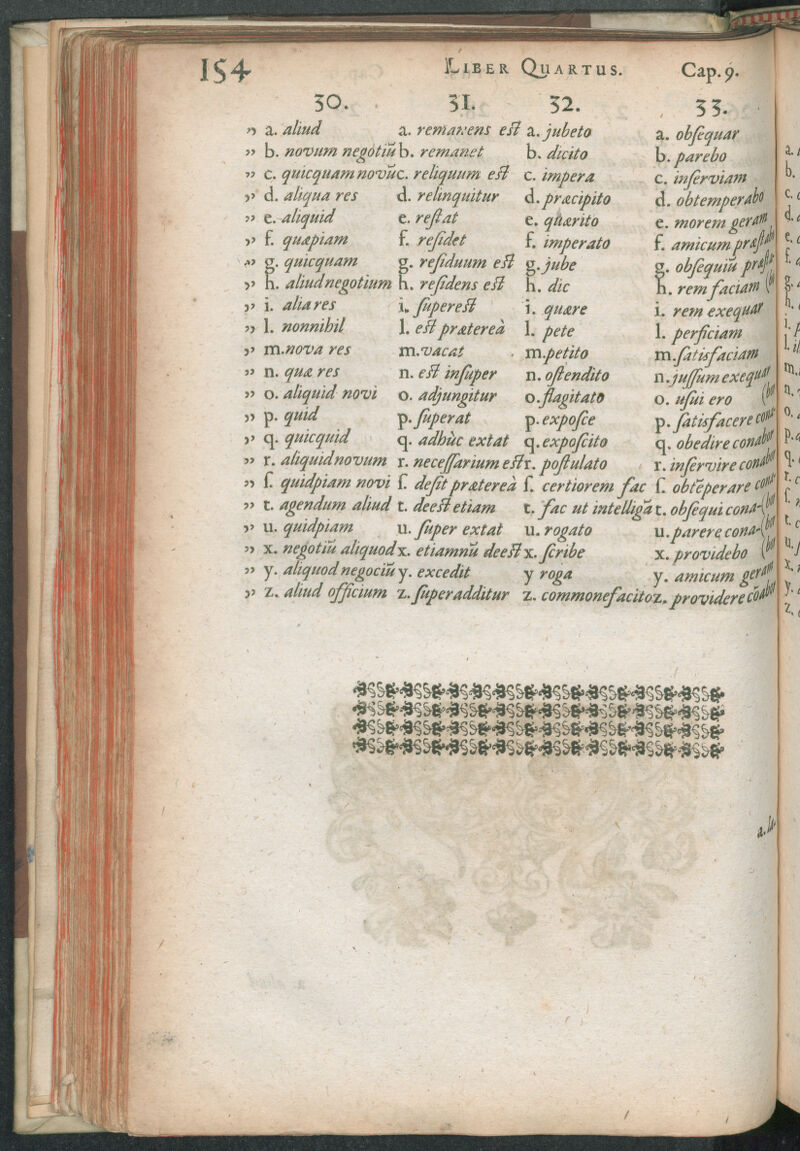 154 LIBER QUARTUS. Cap. 9.
30. 31. 32. 33.
„ a. aliud a. remanens est a. jubeto a. obsequar
„ b. novum negotiū b. remanet b. dicito b. parebo
„ c. quicquam novū c. reliquum est c. impera c. inserviam
„ d. aliqua res d. relinquitur d. præcipito d. obtemperabo
„ e. aliquid e. restat e. quærito e. morem geram
„ f. quæpiam f. residet f. imperato f. amicum præstabo
„ g. quicquam g. residuum est g. jube g. obsequiū præsta-
„ h. aliud negotium h. residens est h. dic h. rem faciam (bo
„ i. alia res i. superest i. quære i. rem exequar
„ l. nonnihil l. est prætereà l. pete l. perficiam
„ m. nova res m. vacat m. petito m. satisfaciam
„ n. quæ res n. est insuper n. ostendito n. jussum exequar
„ o. aliquid novi o. adjungitur o. flagitato o. usui ero (bor
„ p. quid p. superat p. exposce p. satisfacere cona-
„ q. quicquid q. adhùc extat q. exposcito q. obedire conabor
„ r. aliquid novum r. necessarium est r. postulato r. inservire conabor
„ s. quidpiam novi s. desit prætereà s. certiorem fac s. obtēperare cona-
„ t. agendum aliud t. deest etiam t. fac ut intelligāt t. obsequi cona- (bor
„ u. quidpiam u. super extat u. rogato u. parere cona- (bor
„ x. negotiū aliquod x. etiamnū deest x. scribe x. providebo (bor
„ y. aliquod negociū y. excedit y roga y. amicum geram
„ z. aliud officium z. superadditur z. commonefacito z. providere cōabor